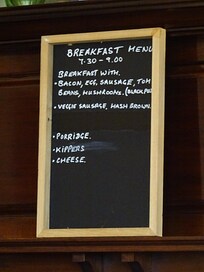 BREAKFAST MENU
7.30 - 9.00
BREAKFAST WITH.
• BACON, EGG, SAUSAGE, TOM
BEANS, MUSHROOMS. (BLACK PU
• VEGGIE SAUSAGE, HASH BROWN.
• PORRIDGE.
• KIPPERS
• CHEESE.